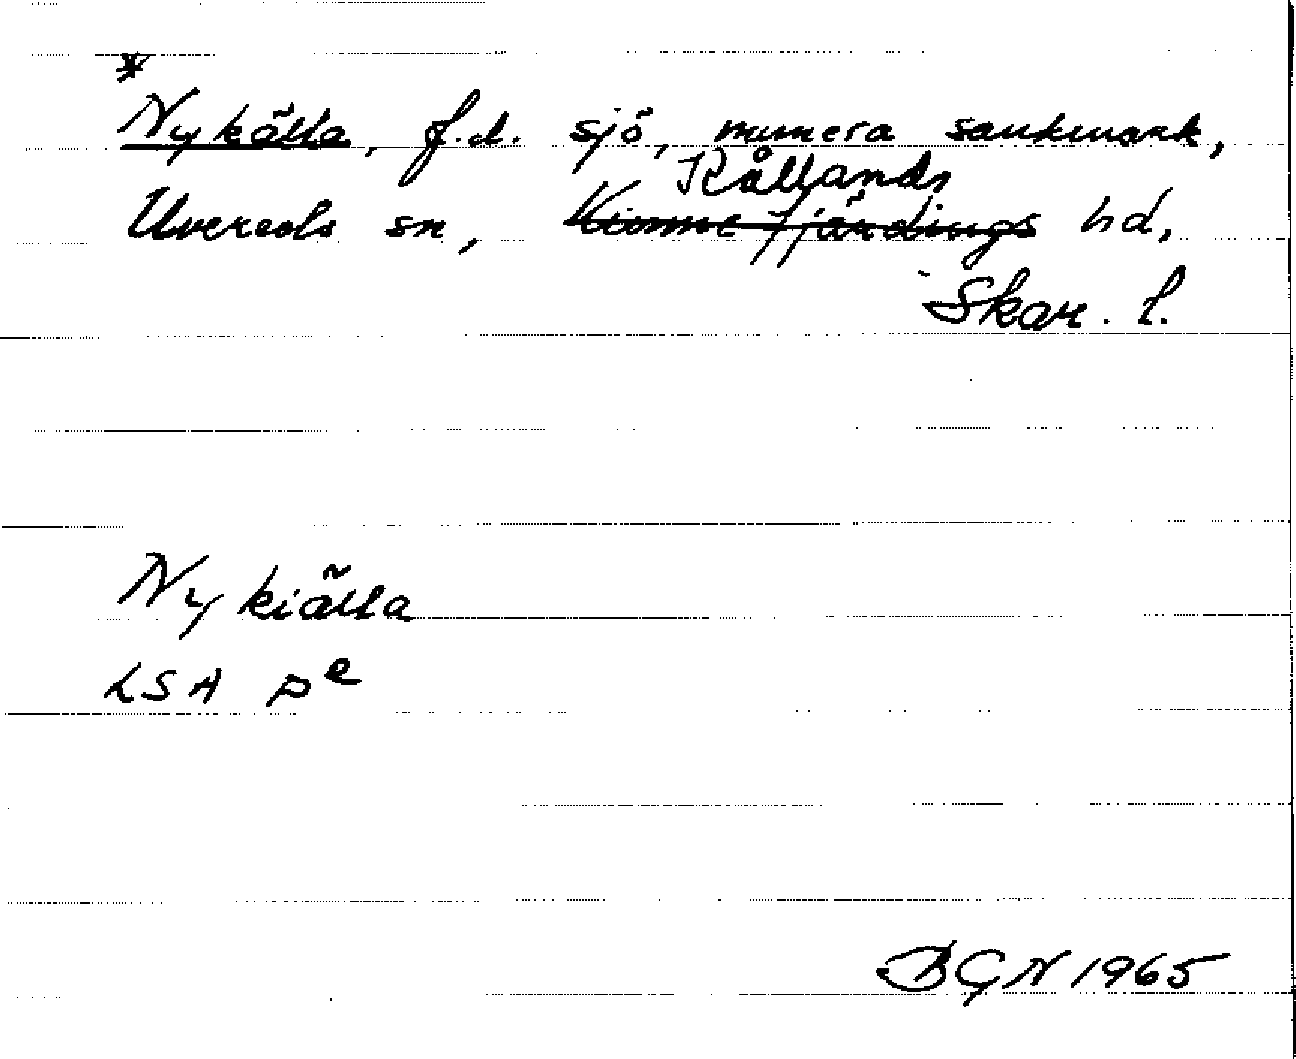 *
Nykälla, f.d. sjö, numera sankmark,
Kållands
Uvereds sn, Kinne fjärdings hd,
Skar. l.
Nykiälla
LSA pe
BGN 1965